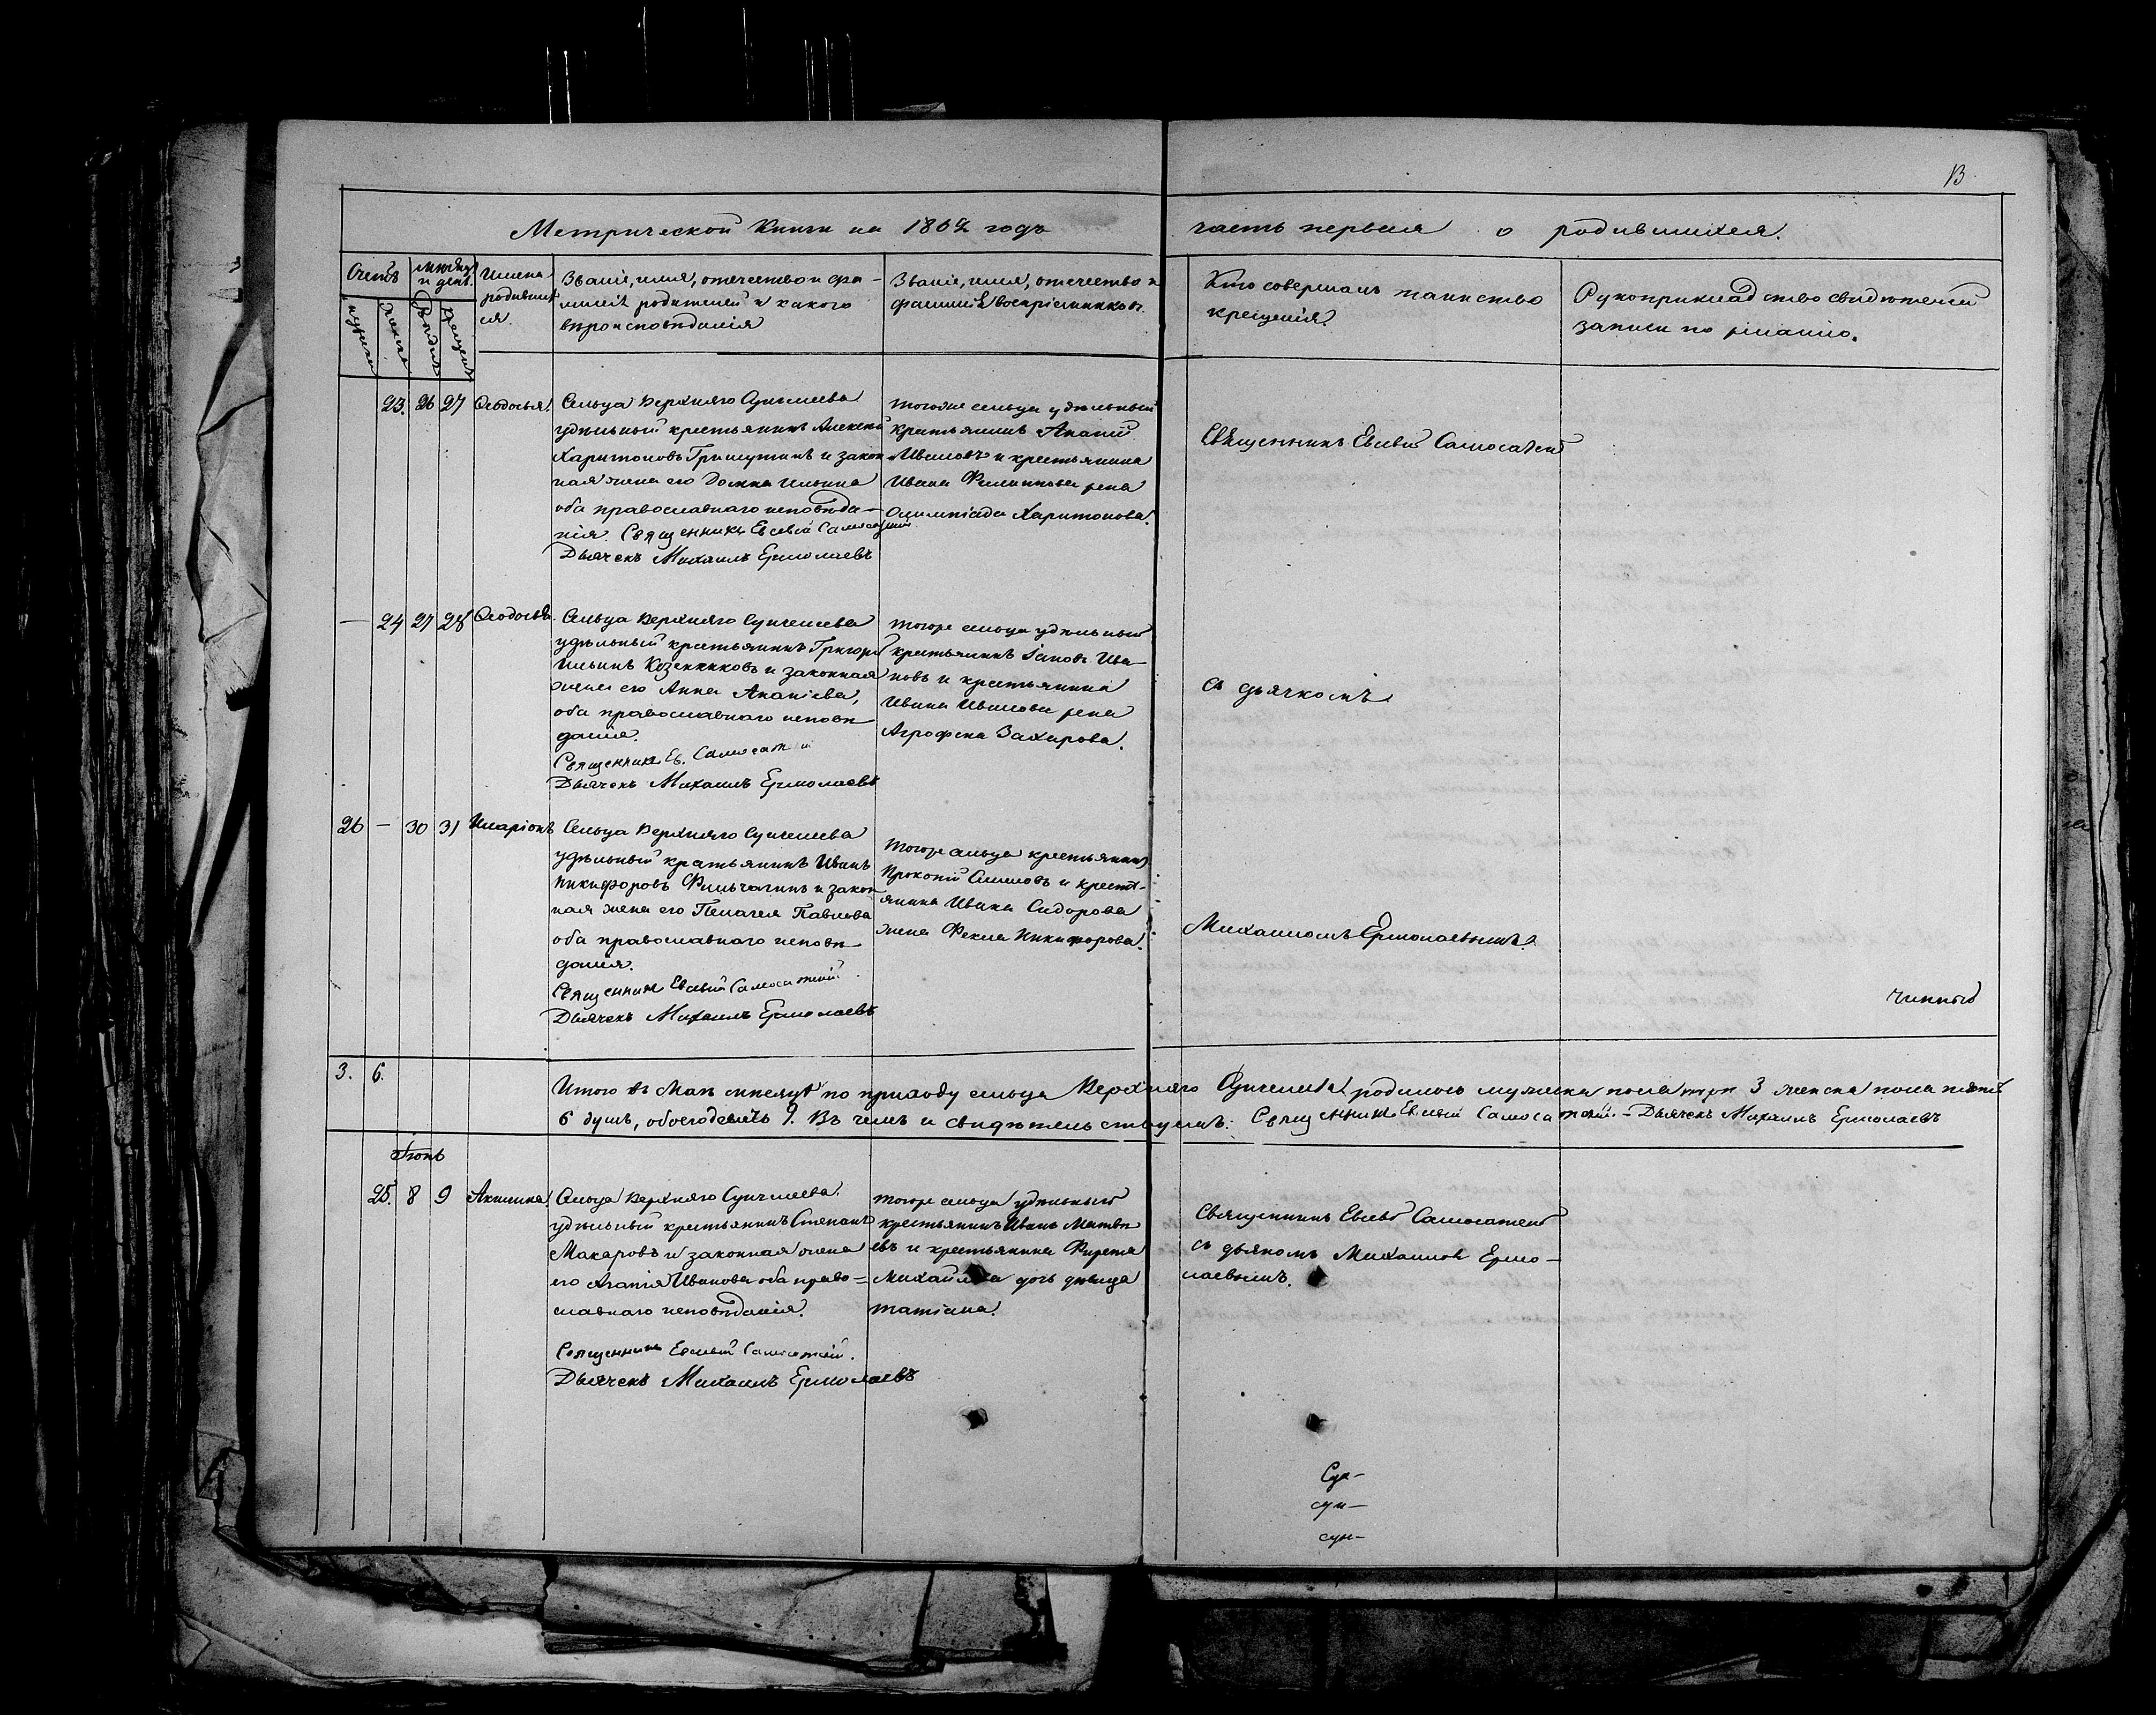 13.
Метрической Книги на 1862 годъ часть первая о родившихся.
Счетъ
Мѣсяцъ и день.
мужеска
женска
Рожденія
Крещенія
Имена
родивших
ся.
Званіе, имя, отечество и фа-
милія родителей и какого
вѣроисповѣданія
Званіе, имя, отечество и
фамилія воспріемниковъ.
Кто совершалъ таинство
крещенія.
Рукоприкладство свидѣтелей
записи по желанію.
23. 26 27 Ѳеодосья.
Сельца Верхняго Сунчелеева
удѣльный крестьянинъ Алексѣй
Харитоновъ Гришутинъ и закон
ная жена его Домна Ильина
оба православнаго исповѣда-
нія. Священникъ Евсевій Самосатскій
Дьячекъ Михаилъ Ермолаевъ
тогоже сельца удѣльный
крестьянинъ Ананій
Ивановъ и крестьянина
Ивана Филиппова жена
Олимпіада Харитонова.
Священникъ Евсевій Самосатскій
— 24 27 28 Ѳеодосья.
Сельца Верхняго Сунчелеева
удѣльный крестьянинъ Григорій
Ильинъ Козенковъ и законная
жена его Анна Ананіева,
оба православнаго исповѣ-
данія.
Священникъ Ев. Самосат
Дьячекъ Михаилъ Ермолаевъ
тогоже сельца удѣльный
крестьянинъ Іаковъ Ива-
новъ и крестьянина
Ивана Иванова жена
Агрофена Захарова.
съ дьячкомъ
26 — 30 31 Иларіонъ
Сельца Верхняго Сунчелеева
удѣльный крестьянинъ Иванъ
Никифоровъ Фильчагинъ и закон
ная жена его Пелагея Павлова
оба православнаго исповѣ-
данія.
Священникъ Евсевій Самосатскій.
Дьячекъ Михаилъ Ермолаевъ
тогоже сельца крестьянинъ
Прокопій и крестъ-
янина Ивана Сидорова
жена Фекла Никифорова.
Михаиломъ Ермолаевымъ.
3. 6.
Итого въ Маѣ мѣсяцѣ по приходу сельца Верхняго Сунчелеева родилось мужеска пола 3 женска пола
6 душъ, обоего 9. Въ чемъ и свидѣтельствуемъ: Священникъ Евсевій Самосатскій. – Дьячекъ Михаилъ Ермолаевъ
Іюнь
25. 8 9 Акилина.
Сельца Верхняго Сунчелеева.
удѣльный крестьянинъ Степанъ
Макаровъ и законная жена
его Агапія Иванова оба право-
славнаго исповѣданія.
Священникъ Евсевій Самосатскій.
Дьячекъ Михаилъ Ермолаевъ
тогоже сельца удѣльный
крестьянинъ Иванъ Матвѣ
евъ и крестьянина
Михайлова дочь дѣвица
татіана.
Священникъ Евсевій Самосатскій
съ дьякомъ Михаиломъ Ермо-
лаевымъ.